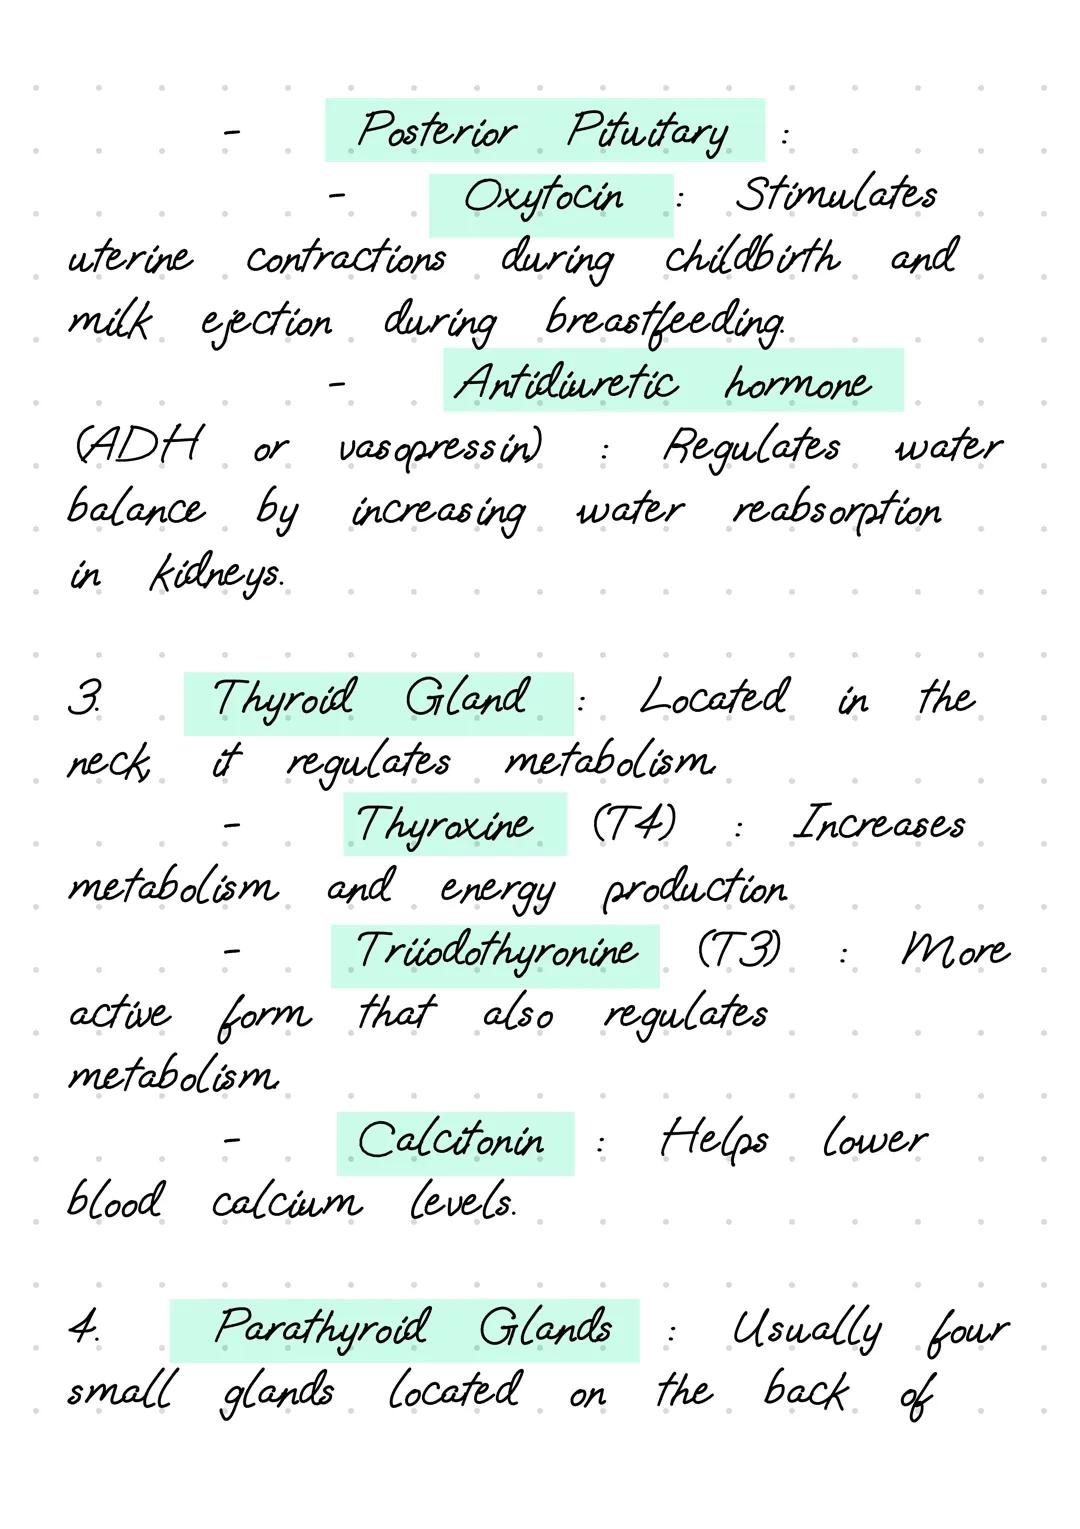 - Posterior Pituitary :
- Oxytocin : Stimulates
uterine contractions during childbirth and
milk ejection during breastfeeding.
- Antidiuretic hormone
(ADH or vasopressin) : Regulates water
balance by increasing water reabsorption
in kidneys.
3. Thyroid Gland : Located in the
neck, it regulates metabolism.
- Thyroxine (T4) : Increases
metabolism and energy production.
- Triiodothyronine (T3) : More
active form that also regulates
metabolism.
- Calcitonin : Helps lower
blood calcium levels.
4. Parathyroid Glands : Usually four
small glands located on the back of